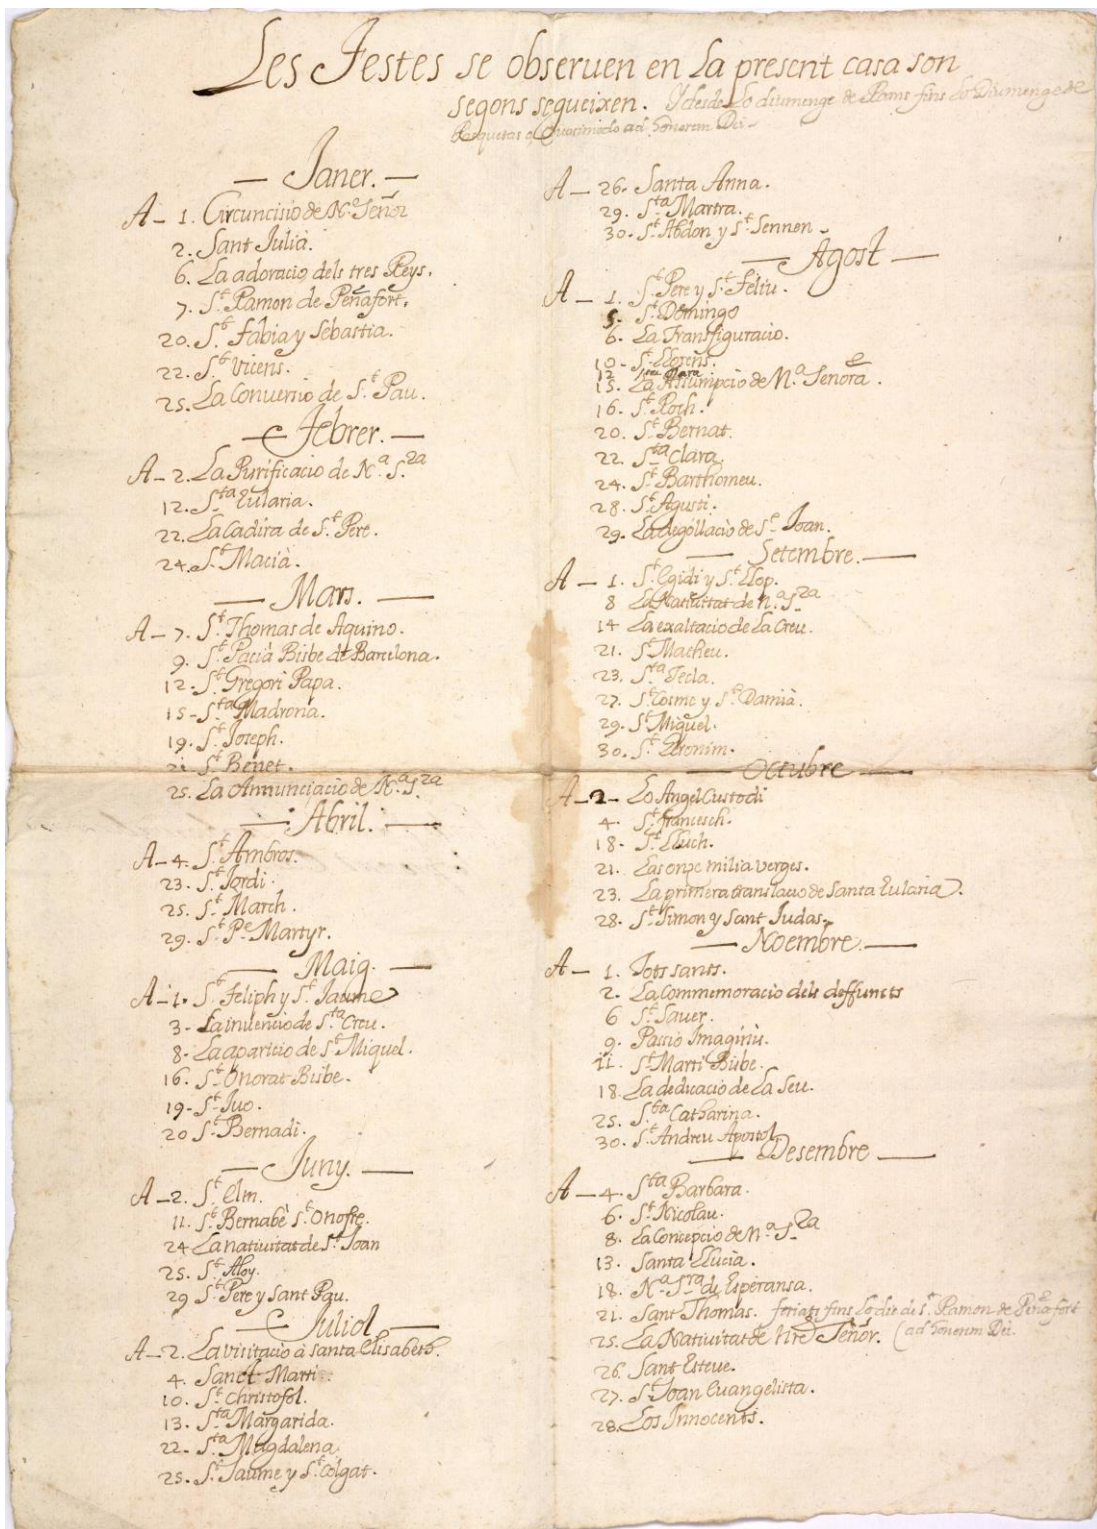 Les Festes se obseruen en La present casa son
segons segueixen. Y desde Lo diumenge de Rams fins Lo Diumenge de
Pasquetas o Quasimodo ad honorem Dei -
— Janer. —
A - 1. Circuncisio de N.ᵉ Señor
2. Sant Julià.
6. La adoracio dels tres Reys.
7. S.ᵗ Ramon de Peñafort.
20. S.ᵗ Fabia y Sebastia.
22. S.ᵗ Vicens.
25. La Conuersio de S.ᵗ Pau.
— Febrer. —
A - 2. La Purificacio de N.ᵃ S.ʳᵃ
12. S.ᵗᵃ Eularia.
22. La Cadira de S.ᵗ Pere.
24. S.ᵗ Macià.
— Mars. —
A - 7. S.ᵗ Thomas de Aquino.
9. S.ᵗ Pacià Bisbe de Barcelona.
12. S.ᵗ Gregori Papa.
15 - S.ᵗᵃ Madrona.
19. S.ᵗ Joseph.
21. S.ᵗ Benet.
25. La Annunciacio de N.ᵃ S.ʳᵃ
— Abril. —
A - 4. S.ᵗ Ambros.
23. S.ᵗ Jordi.
25. S.ᵗ March.
29. S.ᵗ P.ᵉ Martyr.
— Maig. —
A - 1. S.ᵗ Feliph y S.ᵗ Jaume
3 - La inuencio de S.ᵗᵃ Creu.
8 - La aparicio de S.ᵗ Miquel.
16. S.ᵗ Onorat Bisbe.
19 - S.ᵗ Iuo.
20 S.ᵗ Bernadi.
— Juny. —
A - 2. S.ᵗ Elm.
11. S.ᵗ Bernabè S.ᵗ Onofre.
24 La natiuitat de S.ᵗ Joan
25. S.ᵗ Aloy.
29 S.ᵗ Pere y Sant Pau.
— Juliol —
A - 2. La visitacio à santa Elisabeth.
4. Sanct Marti
10. S.ᵗ Christofol.
13. S.ᵗᵃ Margarida.
22 - S.ᵗᵃ Magdalena.
25. S.ᵗ Jaume y S.ᵗ Colgat.
A - 26. Santa Anna.
29. S.ᵗᵃ Martra.
30. S.ᵗ Abdon y S.ᵗ Sennen.
— Agost —
A - 1. S.ᵗ Pere y S.ᵗ Feliu.
5. S.ᵗ Domingo
6. La Transfiguracio.
10 - S.ᵗ Llorens.
12 S.ᵗᵃ Clara
15. La Assumpcio de N.ᵃ Senora.
16. S.ᵗ Roch.
20. S.ᵗ Bernat.
22. S.ᵗᵃ Clara.
24. S.ᵗ Barthomeu.
28. S.ᵗ Agusti.
29. La degollacio de S.ᵗ Joan.
— Setembre. —
A - 1. S.ᵗ Egidi y S.ᵗ Llop.
8 La Natiuitat de N.ᵃ S.ʳᵃ
14 La exaltacio de La Creu.
21. S.ᵗ Matheu.
23. S.ᵗᵃ Tecla.
27. S.ᵗ Cosme y S.ᵗ Damià.
29. S.ᵗ Miquel.
30. S.ᵗ Geronim.
— Octubre —
A - 2 - Lo Angel Custodi
4. S.ᵗ Francesch.
18 - S.ᵗ Lluch.
21. Las onze milia verges.
23. La primera translacio de Santa Eularia.
28. S.ᵗ Simon y Sant Judas.
— Noembre. —
A - 1. Tots sants.
2. La Commemoracio dels deffuncts
6 S.ᵗ Seuer.
9. Passio Imaginis.
11. S.ᵗ Marti Bisbe.
18. La dedicacio de La Seu.
25. S.ᵗᵃ Catharina.
30. S.ᵗ Andreu Apostol.
— Desembre —
A - 4. S.ᵗᵃ Barbara.
6. S.ᵗ Nicolau.
8. La Concepcio de N.ᵃ S.ʳᵃ
13. Santa Llucia.
18. N.ᵃ S.ʳᵃ de Esperansa.
21. Sant Thomas. feriats fins Lo die de S.ᵗ Ramon de Peñafort
25. La Natiuitat de Nre Señor. (ad honorem Dei.
26. Sant Esteue.
27. S.ᵗ Joan Euangelista.
28. Los Innocents.